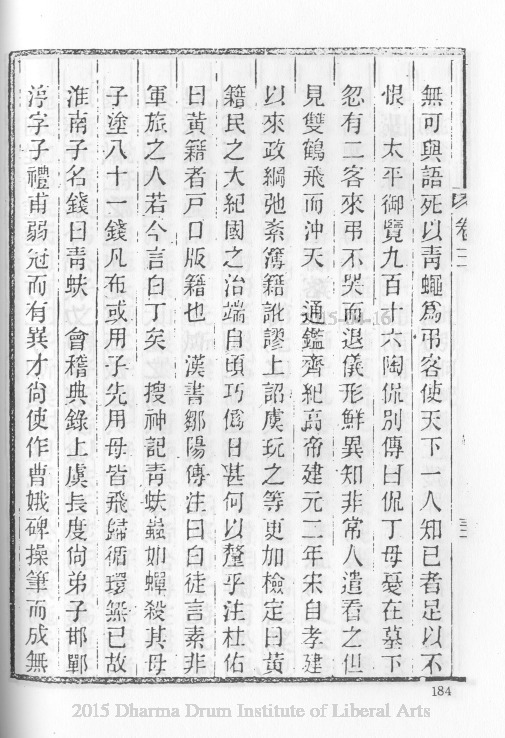 無可與語死以靑蠅爲弔客使天下一人知已者足以不
恨　太平御覽九百十六陶侃別傳曰侃丁母憂在墓下
忽有二客來弔不哭而退儀形鮮異知非常人遣看之但
見雙鶴飛而沖天　通鑑齊紀高帝建元二年宋自孝建
以來政綱弛紊簿籍訛謬上詔虞玩之等更加檢定曰黃
籍民之大紀國之治端自頃巧僞日甚何以釐乎注杜佑
曰黃籍者戸口版籍也　漢書鄒陽傳注曰白徒言素非
軍旅之人若今言白丁矣　搜神記靑蚨蟲如蟬殺其母
子塗八十一錢凡布或用子先用母皆飛歸循環無已故
淮南子名錢曰靑蚨　會稽典錄上虞長度尙弟子邯鄲
淳字子禮甫弱冠而有異才尙使作曹娥碑操筆而成無
卷二
三
184
2015 Dharma Drum Institute of Liberal Arts